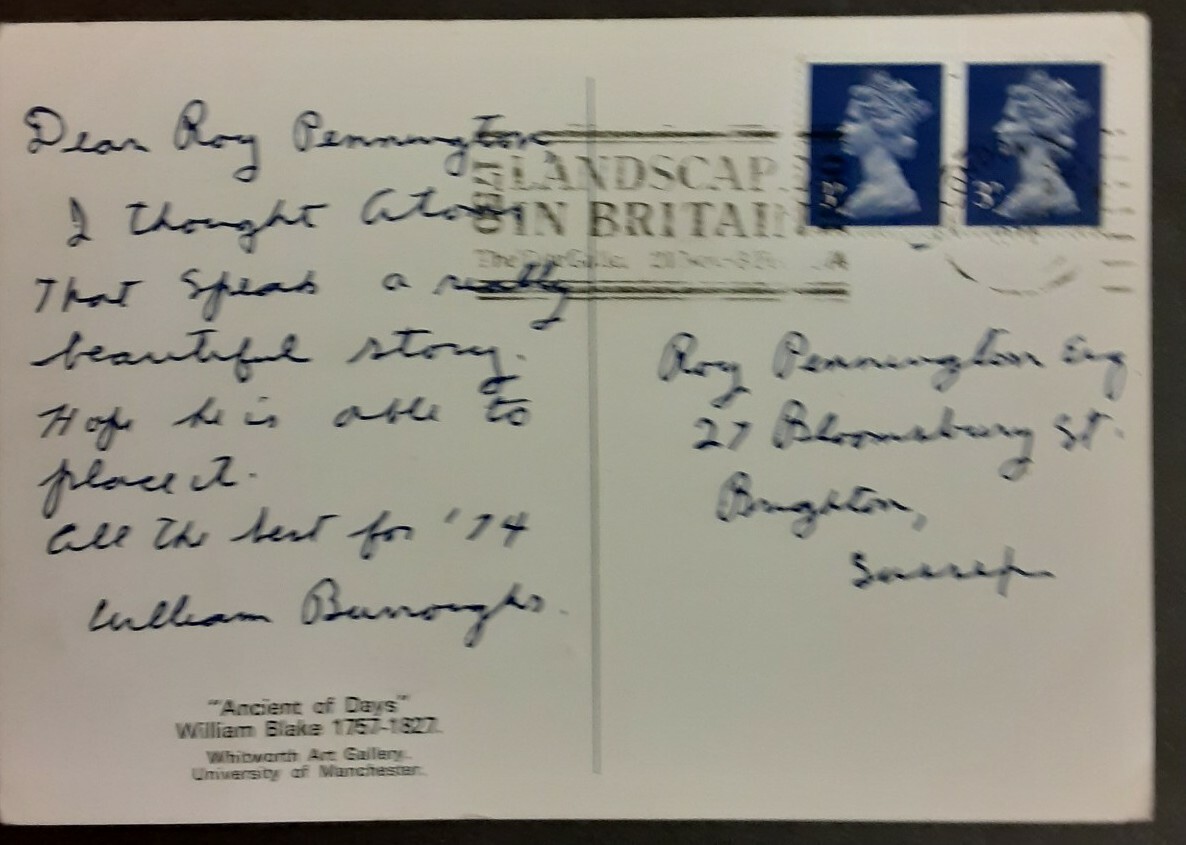 Dear Roy Pennington
I thought Atoms
That Speak a really
beautiful story.
Hope he is able to
place it.
All the best for '74
William Burroughs.
"Ancient of Days"
William Blake 1757-1827.
Whitworth Art Gallery.
University of Manchester.
LANDSCAP
IN BRITAIN
The
3P
3P
Roy Pennington Esq
27 Bloomsbury St.
Brighton,
Sussex